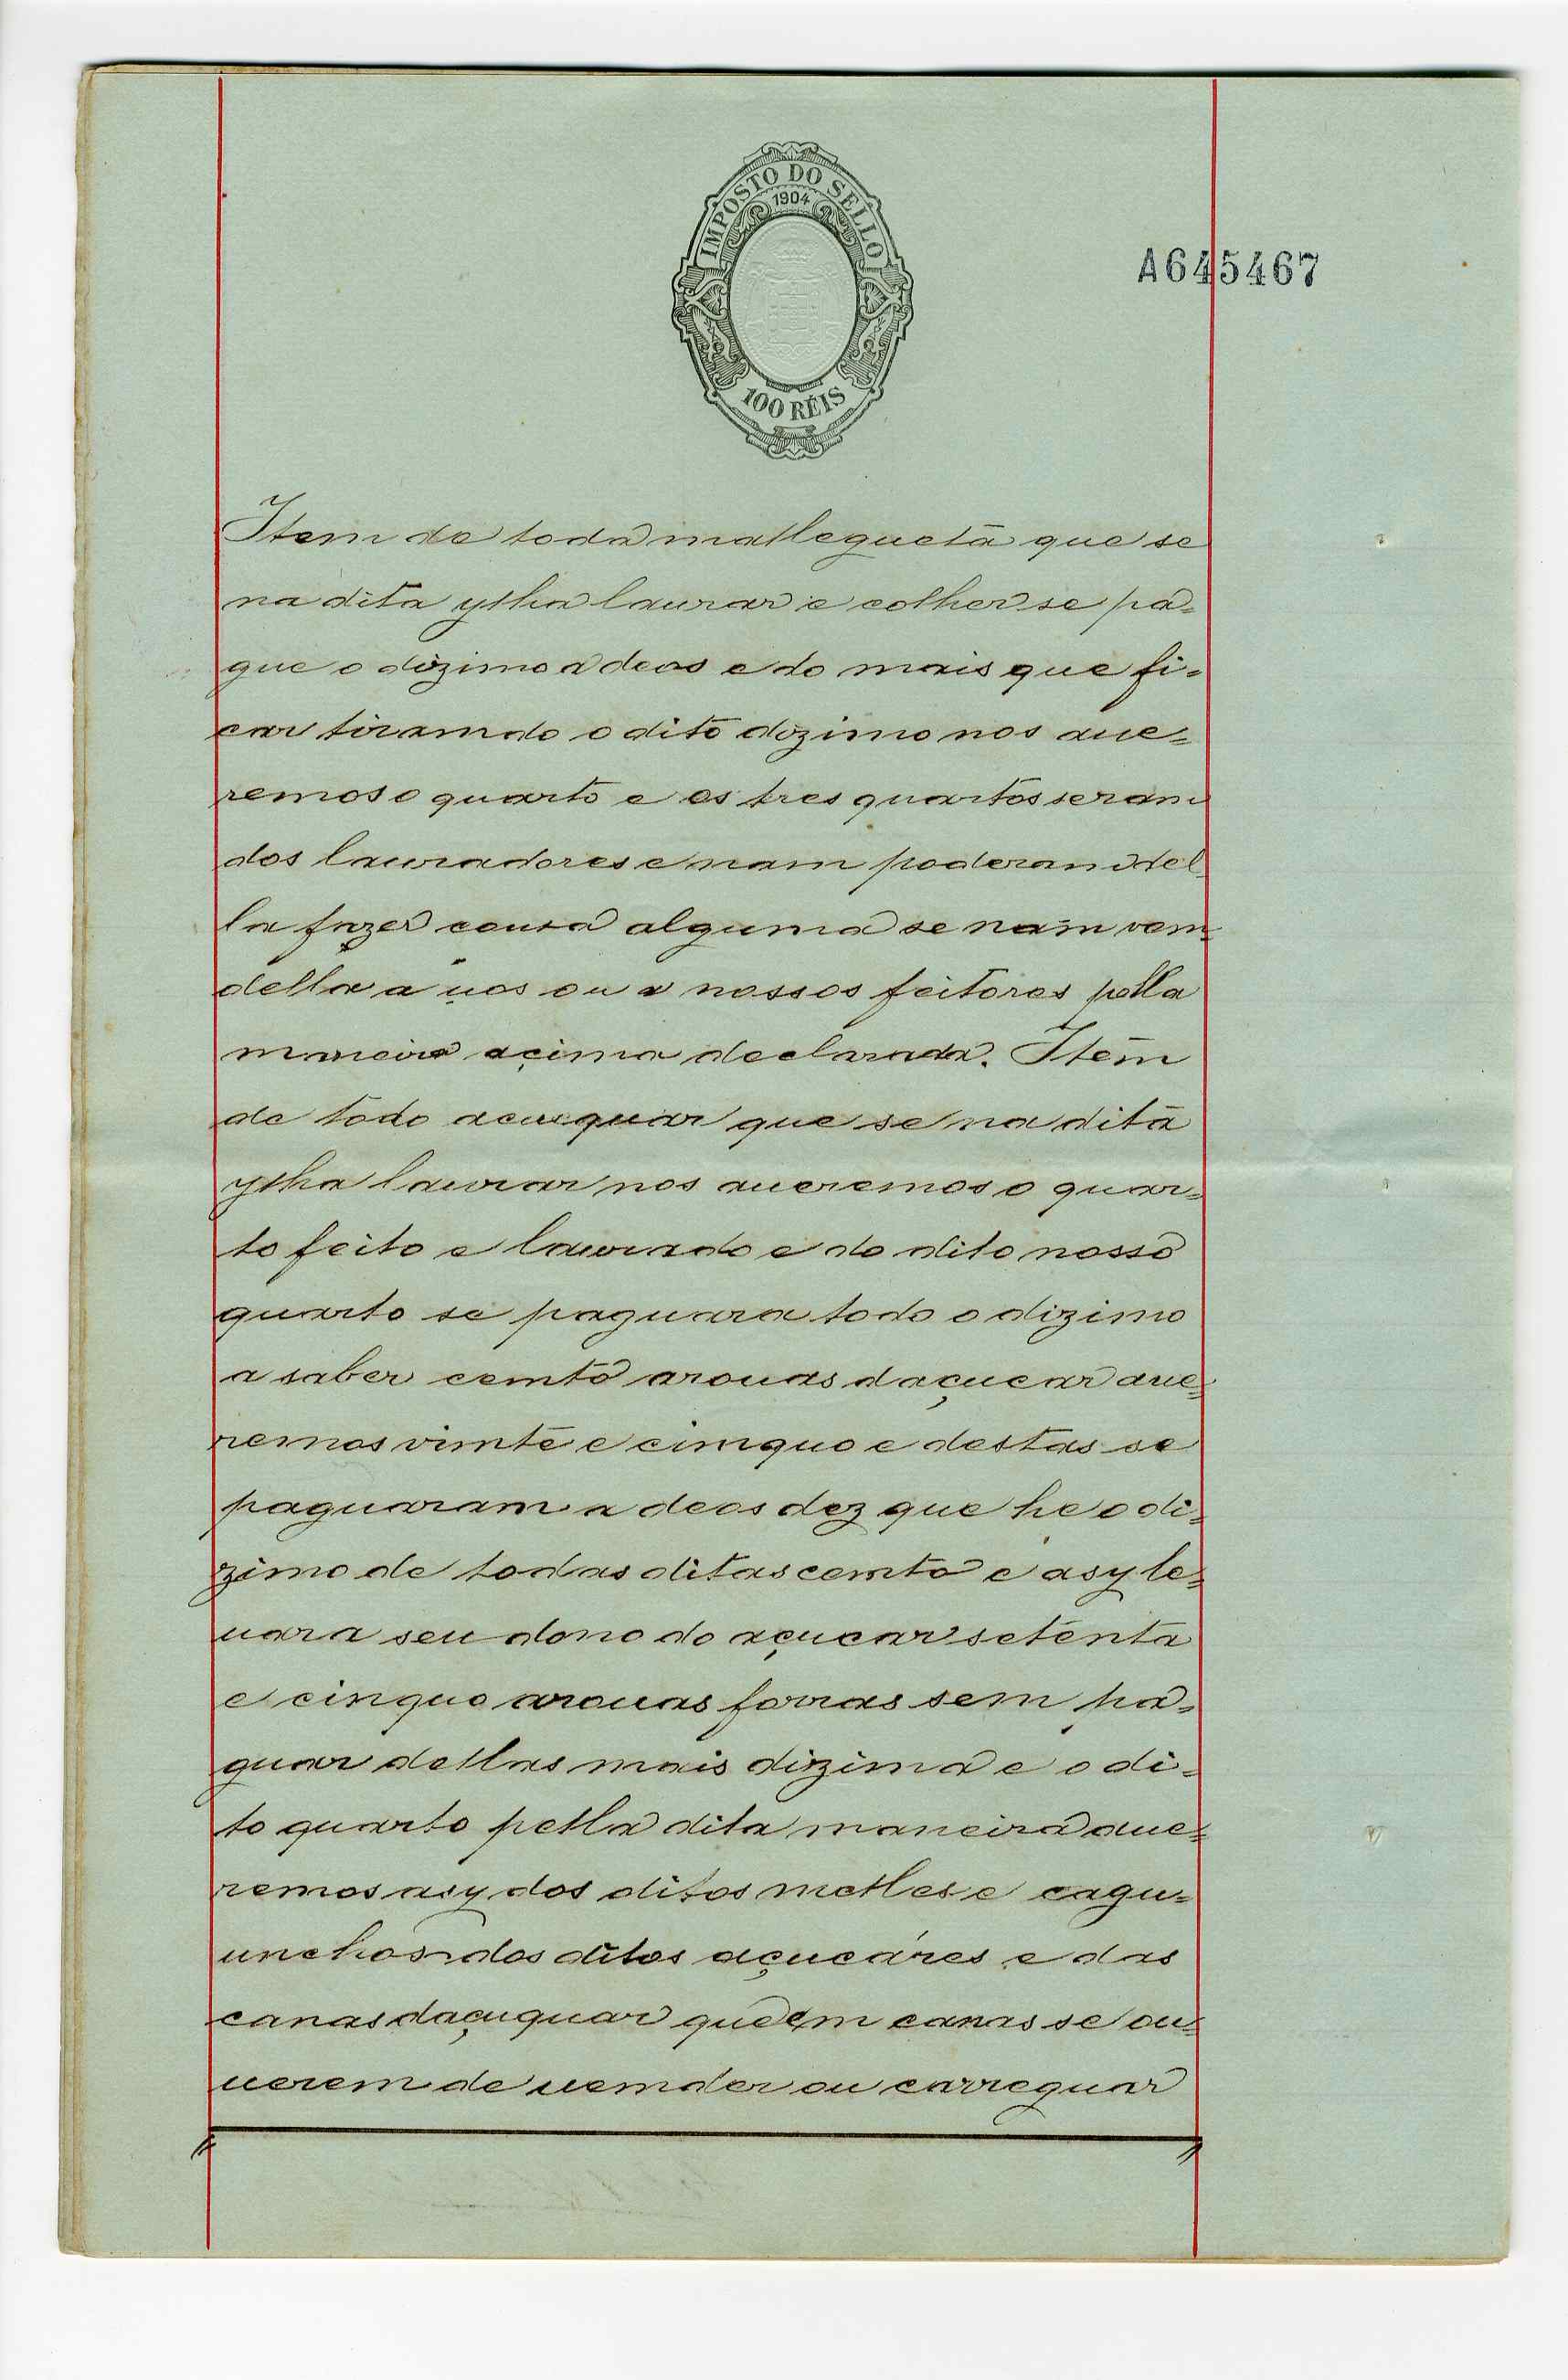 IMPOSTO DO SELLO
1904
100 RÉIS
A645467
Item de toda mallegueta que se
na dita ylha laurar e colher se pa=
gue o dizimo a deos e do mais que fi=
car tiramdo o dito dizimo nos aue=
remos o quarto e os tres quartos seram
dos lauradores e nam poderam del
la fazer cousa alguma se nam vem
della a nos ou a nossos feitores pella
maneira açima declarada. Item
de todo acuquar que se na dita
ylha laurar nos aueremos o quar=
to feito e laurado e do dito nosso
quarto se paguara todo o dizimo
a saber cemto arouas daçucar aue=
remos vimte e cimquo e destas se
paguaram a deos dez que he o di=
zimo de todas ditas cemto e asy le=
uara seu dono do açucar setenta
e cinquo arouas forras sem pa=
guar dellas mais dizima e o di=
to quarto pella dita maneira aue=
remos asy dos ditos melles e cagu=
unchos dos ditos açucáres e das
canas daçuquar que em canas se ou=
uerem de uemder ou carreguar